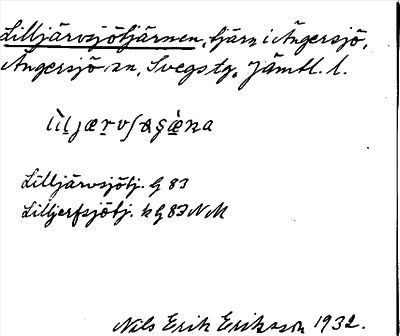 Lilljärvsjötjärnen, tjärn i Ängersjö,
Ängersjö sn, Svegs tg, Jämtl. l.
Lilljärvsjötj. G 83
Lilljerfsjötj. k G 83 N M
Nils Erik Eriksson 1932.